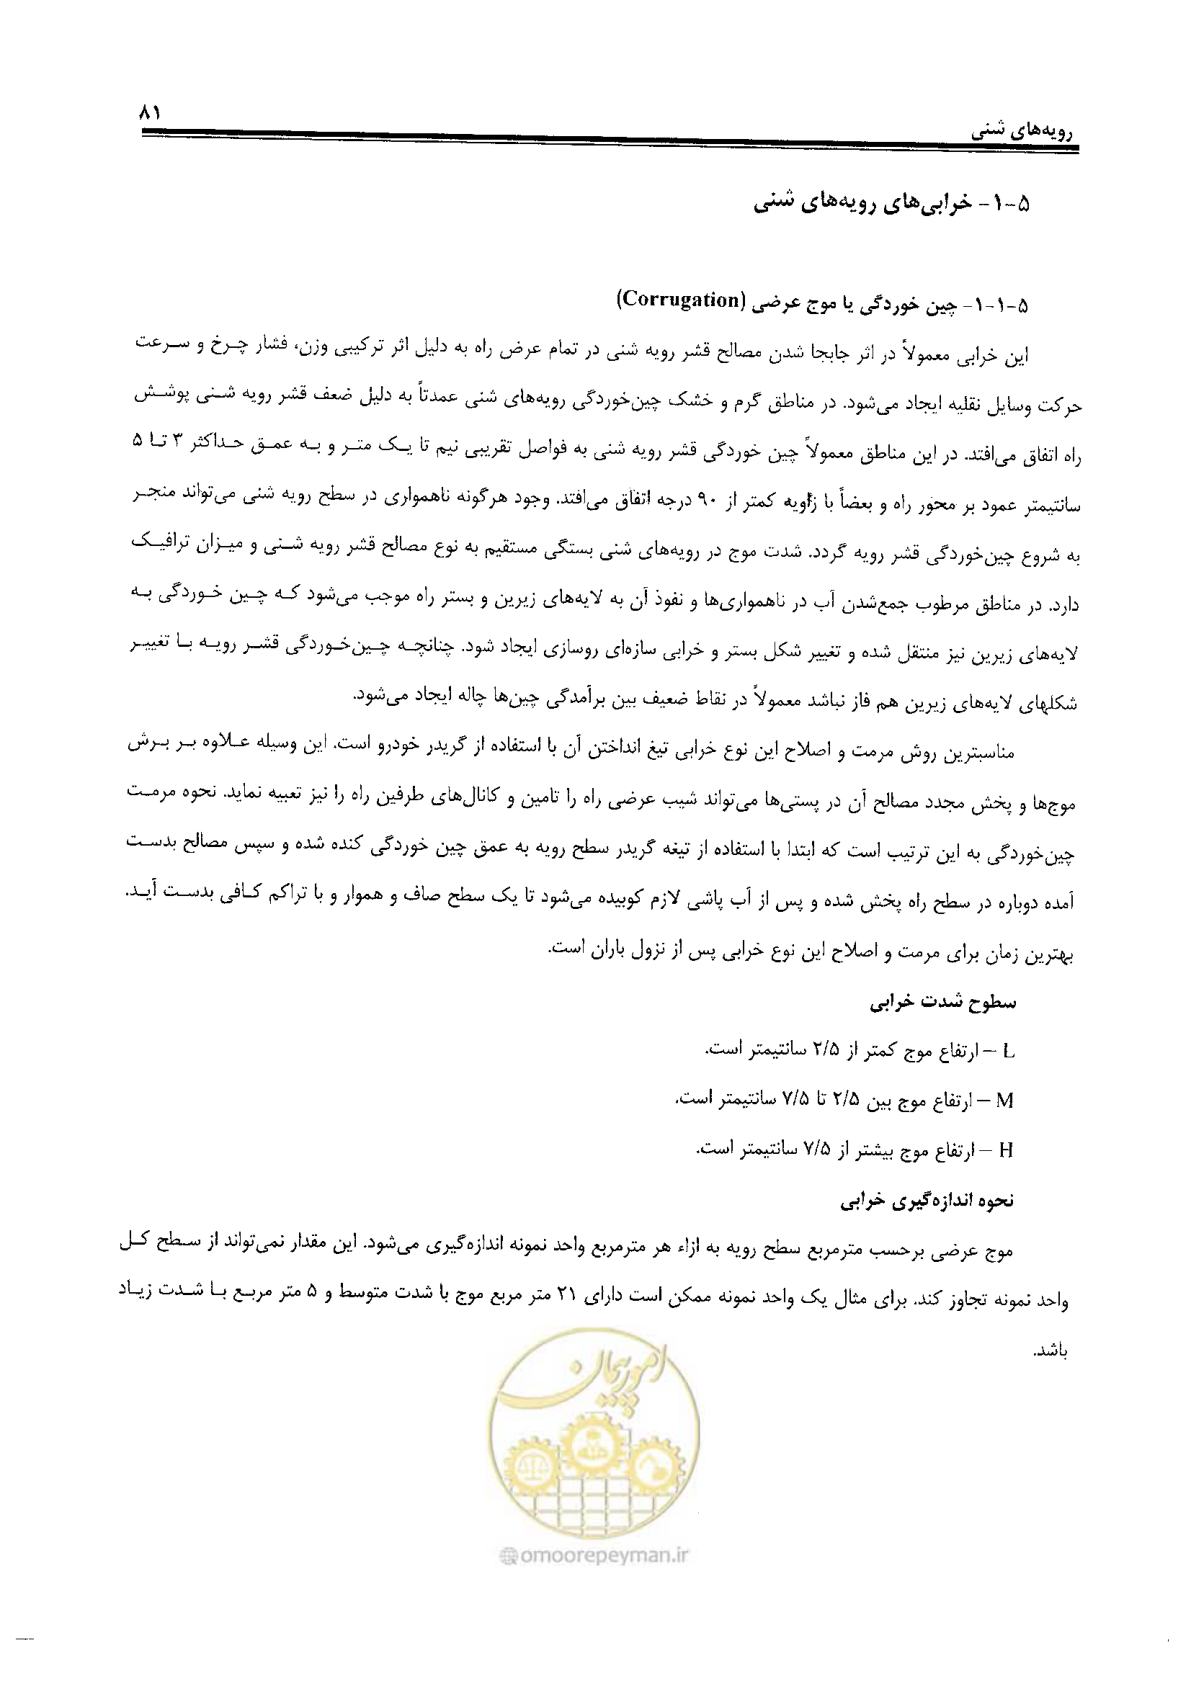 ۸۱
رویه‌های شنی
۵-۱- خرابی‌های رویه‌های شنی
۵-۱-۱- چین خوردگی یا موج عرضی (Corrugation)
این خرابی معمولاً در اثر جابجا شدن مصالح قشر رویه شنی در تمام عرض راه به دلیل اثر ترکیبی وزن، فشار چرخ و سرعت
حرکت وسایل نقلیه ایجاد می‌شود. در مناطق گرم و خشک چین‌خوردگی رویه‌های شنی عمدتاً به دلیل ضعف قشر رویه شنی پوشش
راه اتفاق می‌افتد. در این مناطق معمولاً چین خوردگی قشر رویه شنی به فواصل تقریبی نیم تا یک متر و به عمق حداکثر ۳ تا ۵
سانتیمتر عمود بر محور راه و بعضاً با زاویه کمتر از ۹۰ درجه اتفاق می‌افتد. وجود هرگونه ناهمواری در سطح رویه شنی می‌تواند منجر
به شروع چین‌خوردگی قشر رویه گردد. شدت موج در رویه‌های شنی بستگی مستقیم به نوع مصالح قشر رویه شنی و میزان ترافیک
دارد. در مناطق مرطوب جمع‌شدن آب در ناهمواری‌ها و نفوذ آن به لایه‌های زیرین و بستر راه موجب می‌شود که چین خوردگی به
لایه‌های زیرین نیز منتقل شده و تغییر شکل بستر و خرابی سازه‌ای روسازی ایجاد شود. چنانچه چین‌خوردگی قشر رویه با تغییر
شکلهای لایه‌های زیرین هم فاز نباشد معمولاً در نقاط ضعیف بین برآمدگی چین‌ها چاله ایجاد می‌شود.
مناسبترین روش مرمت و اصلاح این نوع خرابی تیغ انداختن آن با استفاده از گریدر خودرو است. این وسیله علاوه بر برش
موج‌ها و پخش مجدد مصالح آن در پستی‌ها می‌تواند شیب عرضی راه را تامین و کانال‌های طرفین راه را نیز تعبیه نماید. نحوه مرمت
چین‌خوردگی به این ترتیب است که ابتدا با استفاده از تیغه گریدر سطح رویه به عمق چین خوردگی کنده شده و سپس مصالح بدست
آمده دوباره در سطح راه پخش شده و پس از آب پاشی لازم کوبیده می‌شود تا یک سطح صاف و هموار و با تراکم کافی بدست آید.
بهترین زمان برای مرمت و اصلاح این نوع خرابی پس از نزول باران است.
سطوح شدت خرابی
L – ارتفاع موج کمتر از ۲/۵ سانتیمتر است.
M – ارتفاع موج بین ۲/۵ تا ۷/۵ سانتیمتر است.
H – ارتفاع موج بیشتر از ۷/۵ سانتیمتر است.
نحوه اندازه‌گیری خرابی
موج عرضی برحسب مترمربع سطح رویه به ازاء هر مترمربع واحد نمونه اندازه‌گیری می‌شود. این مقدار نمی‌تواند از سطح کل
واحد نمونه تجاوز کند. برای مثال یک واحد نمونه ممکن است دارای ۲۱ متر مربع موج با شدت متوسط و ۵ متر مربع با شدت زیاد
باشد.
امور پیمان
@omoorepeyman.ir